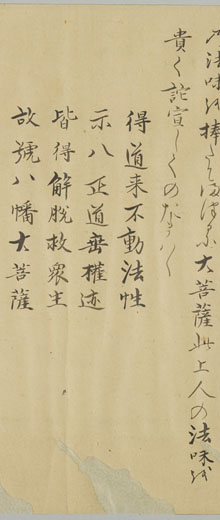 の法味を捧たまふに大菩薩此上人の法味を
貴く託宣してのたまはく
得道来不動法性
示八正道垂權迹
皆得解脱救衆生
故號八幡大菩薩